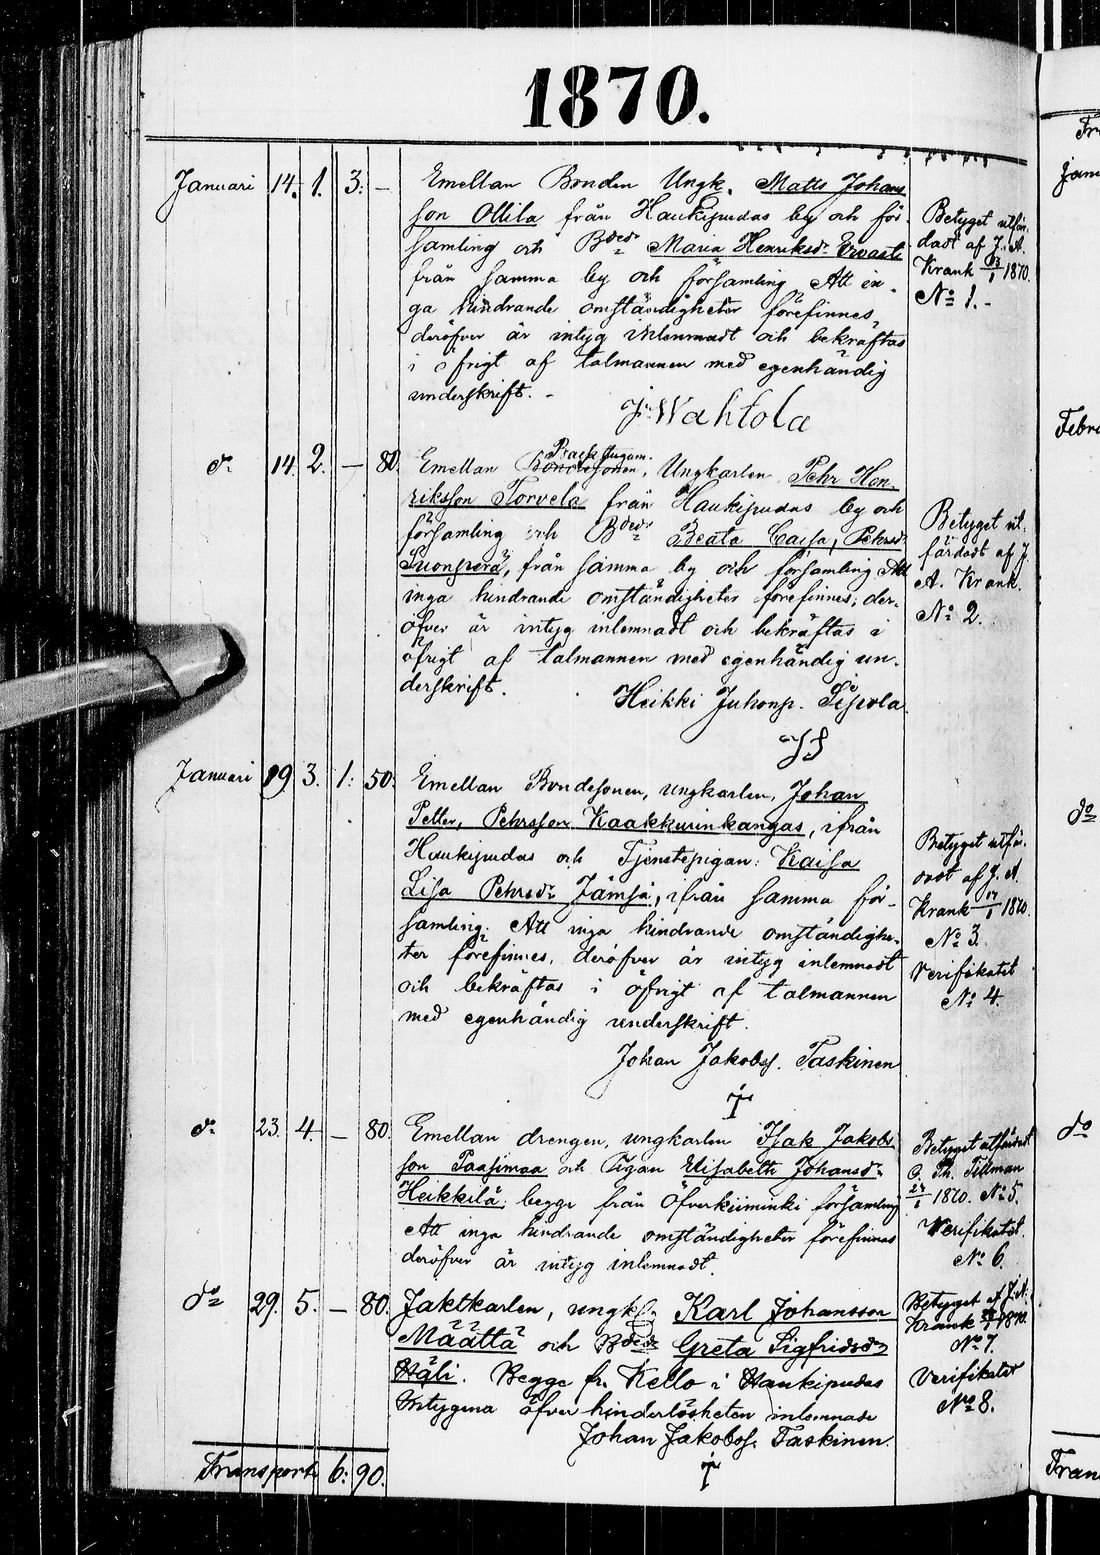 1870.
Januari 14. 1. 3. — Emellan Bonden Ungk. Matts Johans
son Ollila från Haukipudas by och för
samling och Bdedr Maria Henriksdr Ervasti
från samma by och församling. Att in-
ga hindrande omständigheter förefinnes,
deröfver är intyg inlemnadt och bekräftas
i öfrigt af talmannen med egenhändig
underskrift. -
J. Wahtola
Betyget utfär-
dadt af J. A.
Krank 13/1 1870.
No 1. -
do 14. 2. — 80. Emellan Bondesonen, Ungkarlen Pehr Hen-
riksson Torvela från Haukipudas by och
församling och Bdedr Beata Caisa, Pehrsdr
Suonperä, från samma by och församling Att
inga hindrande omständigheter förefinnes; der-
öfver är intyg inlemnadt och bekräftas i
öfrigt af talmannen med egenhändig un-
derskrift.
Heikki Juhonp.
Betyget ut-
färdadt af J.
A. Krank.
No 2.
Januari 19 3. 1. 50. Emellan Bondesonen, ungkarlen, Johan
Petter, Pehrsson Kaakkurinkangas, ifrån
Haukipudas och Tjenstepigan: Kaisa
Lisa Pehrsdr Jämsä, ifrån samma för-
samling. Att inga hindrande omständighe-
ter förefinnes, deröfver är intyg inlemnadt
och bekräftas i öfrigt af talmannen
med egenhändig underskrift.
Johan Jakobss. Taskinen
Betyget utfär-
dadt af J. A.
Krank 1870.
No 3.
Verifikatet
No 4.
do 23. 4. — 80. Emellan drengen, ungkarlen Isak Jakobs-
son Paasimaa och Pigan Elisabeth Johansdr
Heikkilä; begge från Öfverkiiminki församling
Att inga hindrande omständigheter förefinnes
deröfver är intyg inlemnadt.
Betyget utfärdadt
C. Th. Tillman
1870. No 5.
Verifikatet.
No 6.
do 29. 5. — 80. Jaktkarlen, ungk. Karl Johansson
Määttä och Bdedr Greta Sigfridsdr
Häli. Begge fr. Kello i Haukipudas
Intygena öfver hinderlösheten inlemnade
Johan Jakobss. Taskinen.
Betyget af J. A.
Krank 1870.
No 7.
Verifikatet
No 8.
Transport 6. 90.